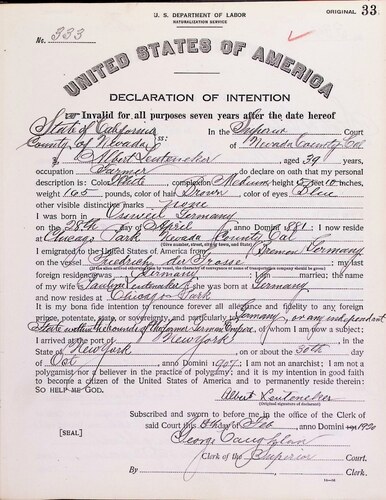 ORIGINAL 33
U. S. DEPARTMENT OF LABOR
NATURALIZATION SERVICE
No. 333
UNITED STATES OF AMERICA
DECLARATION OF INTENTION
Invalid for all purposes seven years after the date hereof
State of California
County of Nevada ss: In the Superior Court of Nevada County Cal
I, Albert Leutenecker, aged 39 years,
occupation Farmer, do declare on oath that my personal
description is: Color White, complexion Medium, height 5 feet 10 inches,
weight 165 pounds, color of hair Brown, color of eyes Blue
other visible distinctive marks
I was born in Germany
on the 28th day of April, anno Domini 1881; I now reside
at Chicago Park Nevada County Cal
(Give number, street, city or town, and State.)
I emigrated to the United States of America from Bremen Germany
on the vessel Friedrich der Grosse; my last
(If the alien arrived otherwise than by vessel, the character of conveyance or name of transportation company should be given.)
foreign residence was Germany; I am married; the name
of my wife is Pauline Leutenecker; she was born at Germany
and now resides at Chicago Park
It is my bona fide intention to renounce forever all allegiance and fidelity to any foreign
prince, potentate, state, or sovereignty, and particularly to Germany, or any independent
State within the bounds of the former German Empire, of whom I am now a subject;
I arrived at the port of New York, in the
State of New York, on or about the 30th day
of Oct, anno Domini 1907; I am not an anarchist; I am not a
polygamist nor a believer in the practice of polygamy; and it is my intention in good faith
to become a citizen of the United States of America and to permanently reside therein:
SO HELP ME GOD.
Albert Leutenecker
(Original signature of declarant.)
Subscribed and sworn to before me in the office of the Clerk of
[SEAL] said Court this day of Feb, anno Domini 1920
George
Clerk of the Superior Court.
By, Clerk.